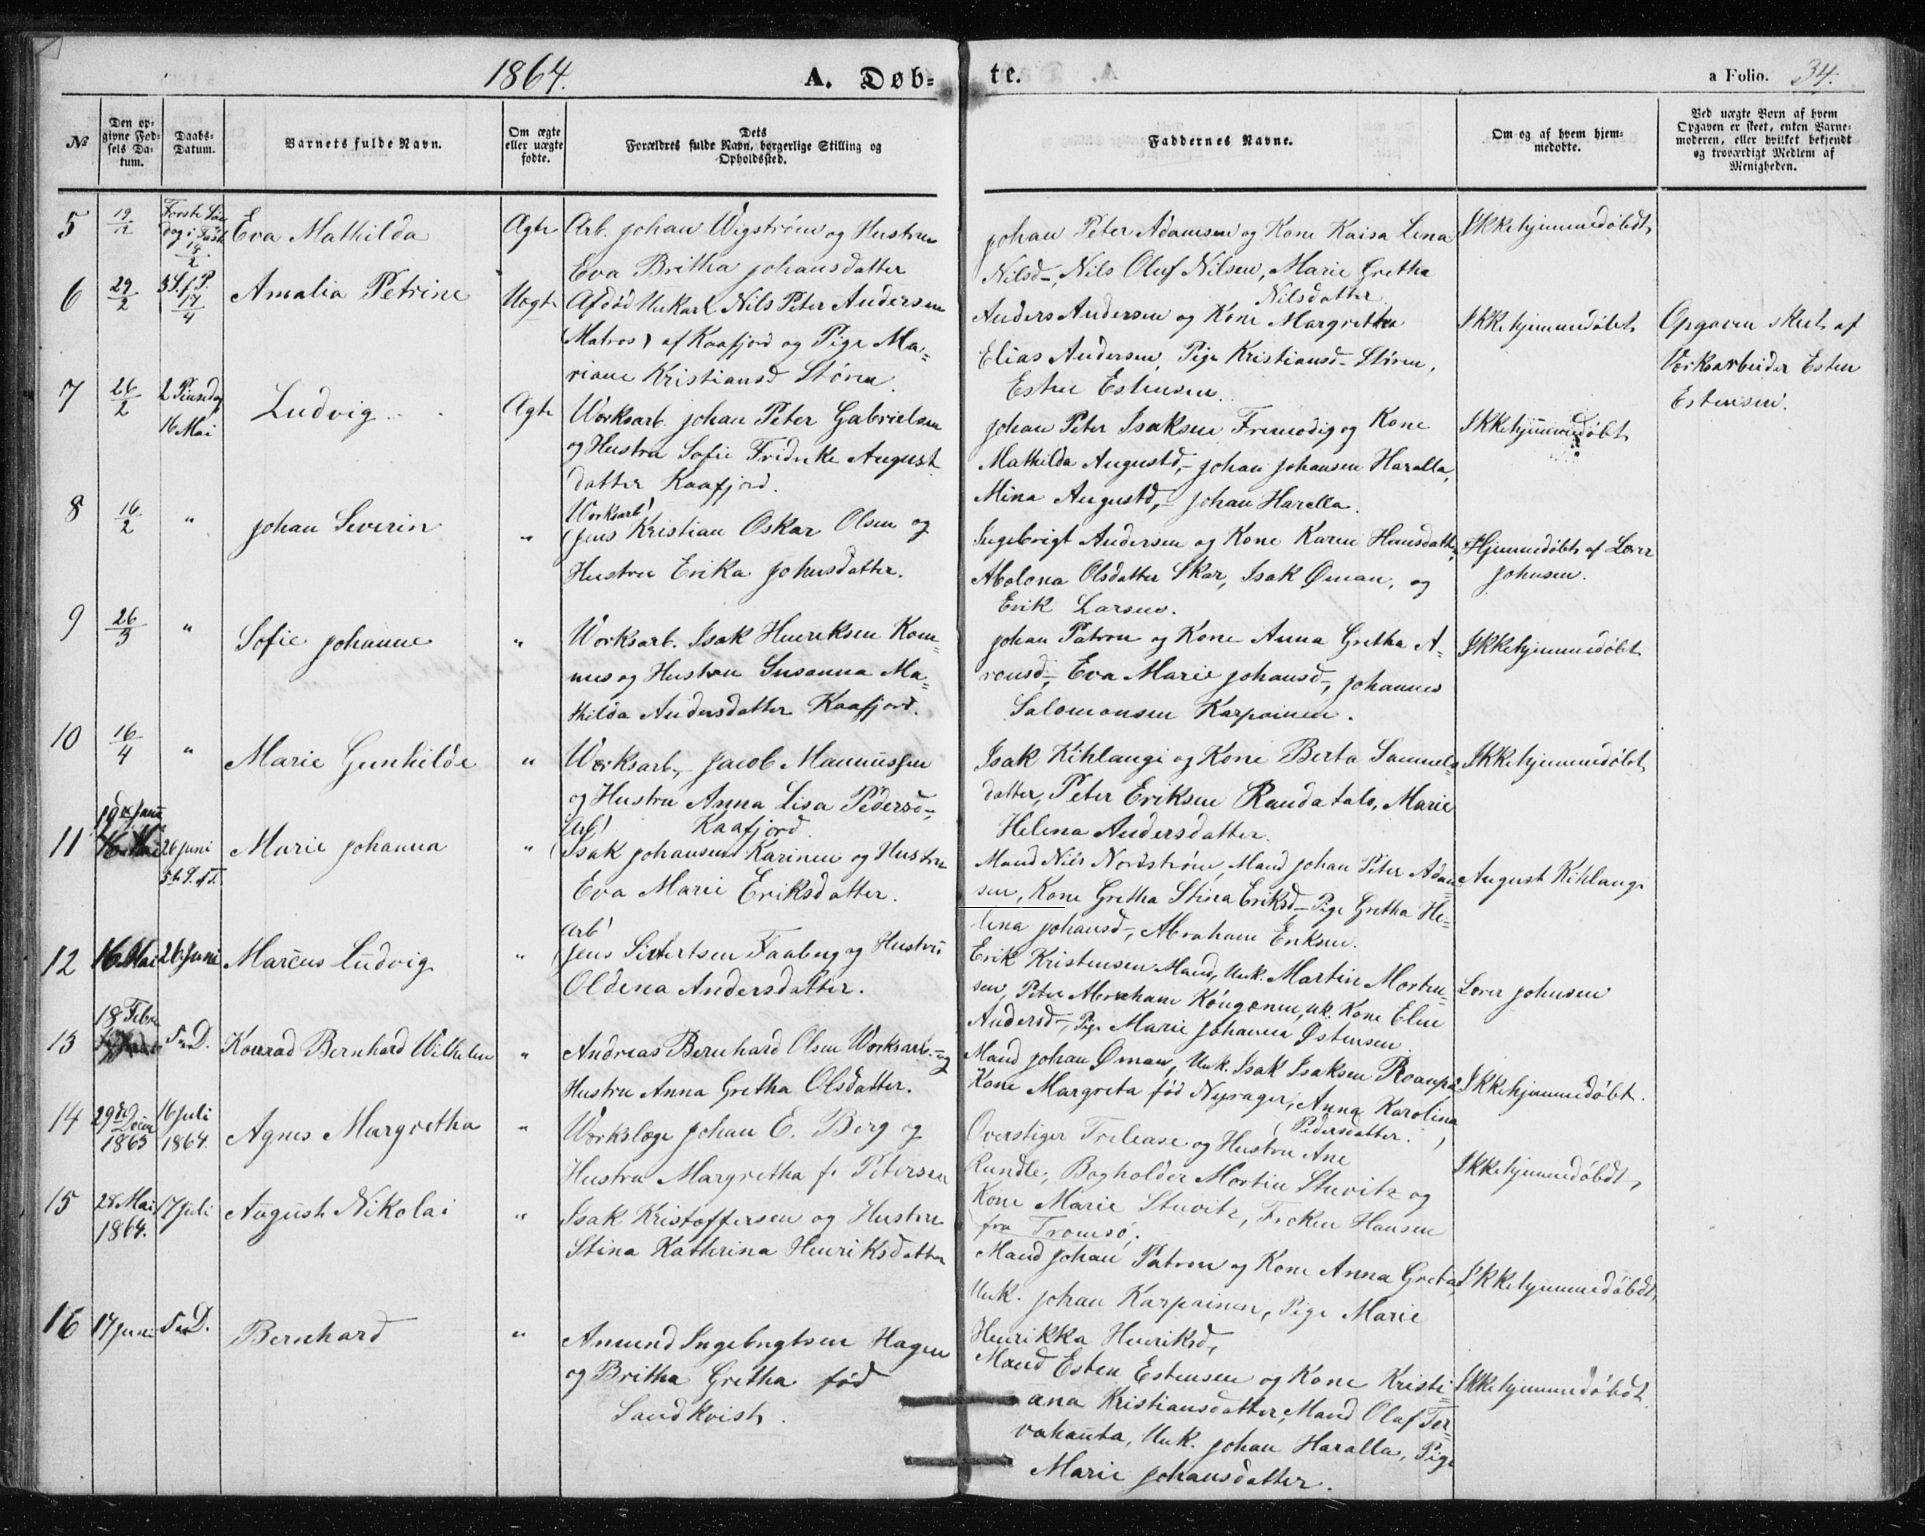 1864.
A. Døb-
te.
a Folio. 34.
№
Den op-
givne Fød-
sels Da-
tum.
Daabs-
Datum.
Barnets fulde Navn.
Om ægte
eller uægte
fødte.
Dets
Forældres fulde Navn, borgerlige Stilling og
Opholdssted.
Faddernes Navne.
Om og af hvem hjem-
medøbte.
Ved uægte Børn af hvem
Opgaven er skeet, enten Barne-
moderen, eller hvilket bekjendt
og troværdigt Medlem af
Menigheden.
5
19/12
Første Søn
dag i Fast
14/2
Eva Mathilda
Ægte
Arb. Johan Wigstrøm og Hustru
Eva Britha Johansdatter
Johan Peter Adamsen og Kone Kaisa Lena
Nilsd-, Nils Oluf Nilsen, Marie Gretha
Nilsdatter
Ikkehjemmedøbdt
6
29/2
3 S. f. P.
17/4
Amalia Petrine
Uægte
Afdød Unkarl Nils Peter Andersen
(Matros) af Kaafjord og Pige Ma-
riane Kristiansd Støren
Anders Andersen og Kone Margretha
Elias Andersen, Pige Kristiansd- Støren,
Esten Estensen.
Ikkehjemmedøbt
Opgaven skeet af
Værksarbeider Esten
Estensen.
7
26/2
2 Pinsedag
16 Mai
Ludvig
Ægte
Værksarb. Johan Peter Gabrielsen
og Hustru Sofie Fridrike August
datter Kaafjord.
Johan Peter Isaksen Fremodig og Kone
Mathilda Augustd,- Johan Johansen Haralla,
Mina Augustd,- Johan Harella.
Ikkehjemmedøbt
8
16/2
"
Johan Severin
"
Værksarb
Jens Kristian Oskar Olsen og
Hustru Erika Johnsdatter.
Ingebrigt Andersen og Kone Karen Hansdatter,
Abolona Olsdatter Skar, Isak Øman, og
Erik Larsen.
Hjemmedøbt af Lærer
Johnsen.
9
26/3
"
Sofie Johanne
"
Værksarb. Isak Henriksen Kom-
mes og Hustru Susanna Ma-
thilda Andersdatter Kaafjord.
Johan Patron og Kone Anna Gretha A-
ronsd-, Eva Marie Johansd-, Johannes
Salomonsen Karpainen.
Ikkehjemmedøbt
10
16/4
"
Marie Gunhilde
"
Værksarb,- Jacob Mannussen
og Hustru Anna Lisa Pedersd-,
Kaafjord
Isak Kihlangi og Kone Berta Samuels
datter, Peter Eriksen Randatalo, Marie
Helena Andersdatter.
Ikkehjemmedøbt
11
19de Janu
26 Juni
5te S. e. T.
Marie Johanna
"
Arb
Isak Johansen Karinen og Hustru
Eva Marie Eriksdatter.
Mand Nils Nordstrøm, Mand Johan Peter Adam-
sen, Kone Gretha Stina Eriksd-, Pige Gretha He-
lena Johansd-, Abraham Eriksen.
August Kihlangi
12
16 Mai
26 Juni
Marcus Ludvig
"
Arb
Jens Sivertsen Faaberg og Hustru
Oldena Andersdatter.
Erik Kristensen Mand, Unk. Martin Morten-
sen, Peter Abraham Køngønen, uk. Kone Elen
Andersd-, Pige Marie Johanna Østensen.
Lærer Johnsen
13
18 Febru
5 D.
Konrad Bernhard Wilhelm
"
Andreas Bernhard Olsen Værksarb. og
Hustru Anna Gretha Olsdatter.
Mand Johan Øman, Unk. Isak Isaksen Roanpa
Kone Margreta fød Nyvager, Anna Karolina
(Pedersdatter.
Ikkehjemmedøbt.
14
29de Decbr
1863
16 Juli
1864.
Agnes Margretha
"
Værkslæge Johan E. Berg og
Hustru Margretha f. Petersen
Overstiger Trelease og Hustru Ane
Rundle, Bogholder Mortin Stuvitz og
Kone Marie Stuvitz, Frøken Hansen
fra Tromsø.
Ikkehjemmedøbdt,
15
28 Mai
1864.
17 Juli
August Nikolai
"
Isak Kristoffersen og Hustru
Stina Kathrina Henriksdatter
Mand Johan Patron og Kone Anna Greta,
Unk. Johan Karpainen, Pige Marie
Henrikka Henriksd,
Ikkehjemmedøbdt,
16
17 Juni
5 D.
Bernhard
"
Amund Ingebrigtsen Hagen
og Britha Gretha fød
Sandkvist.
Mand Esten Estensen og Kone Kristi-
ana Kristiansdatter, Mand Olaf Ter-
vahauta, Unk. Johan Haralla, Pige
Marie Johansdatter.
Ikkehjemmedøbdt